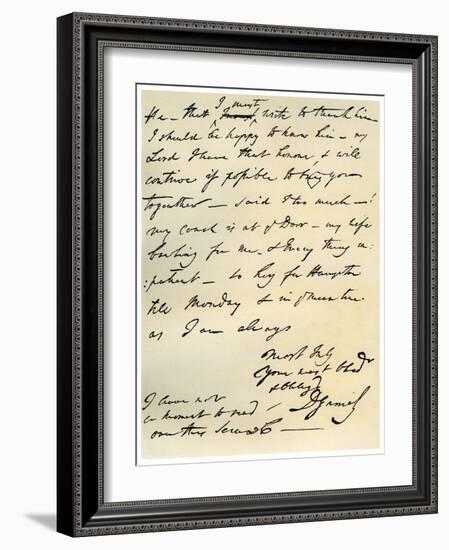 He – that I must write to thank him –
I should be happy to know him – my
Lord I have that honour, & will
contrive if possible to bring you
together – said I too much – !
my coach is at yͤ Door – my wife
bawling for me, & Every thing im:
:patient – so Hey for Hampton
till Monday & in yͤ mean time
as I am always
Most truly
Your most Obedͭ
& Obligᵈ
D Garrick
I have not
a moment to read
over this Scrawl